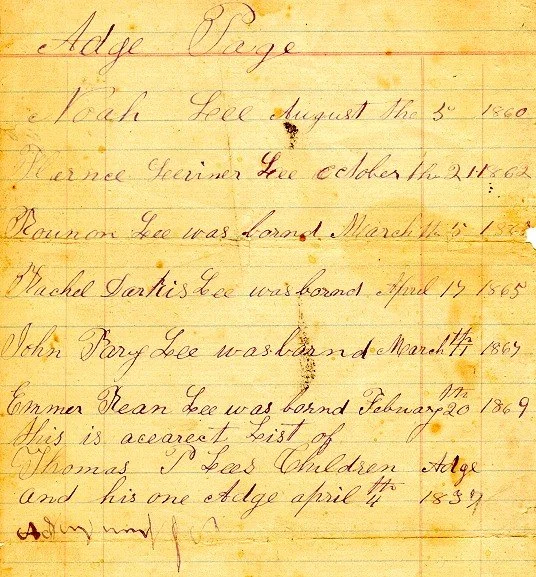 Adge Page
Noah Lee August the 5 1860
Lee October the 21 1862
Rounon Lee was bornd March th 5
Rachel Darkis Lee was bornd April 17 1865
John Pary Lee was barnd March th 1867
Emmer Rean Lee was bornd Febuary th 20 1869
this is acearect List of
Thomas P Lees Children Adge
and his one Adge april th 4 1837